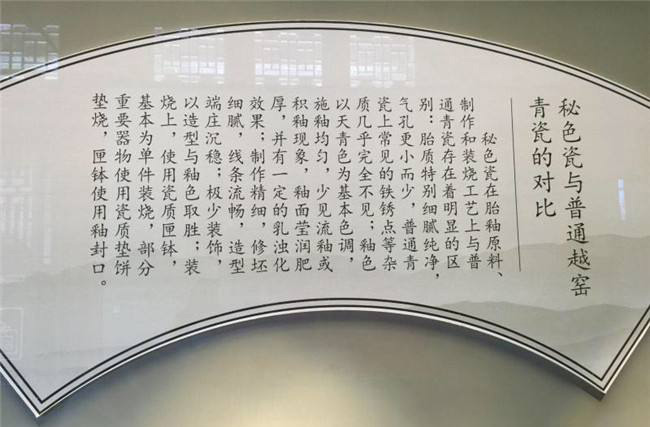 秘色瓷与普通越窑
青瓷的对比
秘色瓷在胎釉原料、
制作和装烧工艺上与普
通青瓷存在着明显的区
别：胎质特别细腻纯净，
气孔更小而少，普通青
瓷上常见的铁锈点等杂
质几乎完全不见；釉色
以天青色为基本色调，
施釉均匀，少见流釉或
积釉现象，釉面莹润肥
厚，并有一定的乳浊化
效果；制作精细，修坯
细腻，线条流畅，造型
端庄沉稳；极少装饰，
以造型与釉色取胜；装
烧上，使用瓷质匣钵，
基本为单件装烧，部分
重要器物使用瓷质垫饼
垫烧，匣钵使用釉封口。